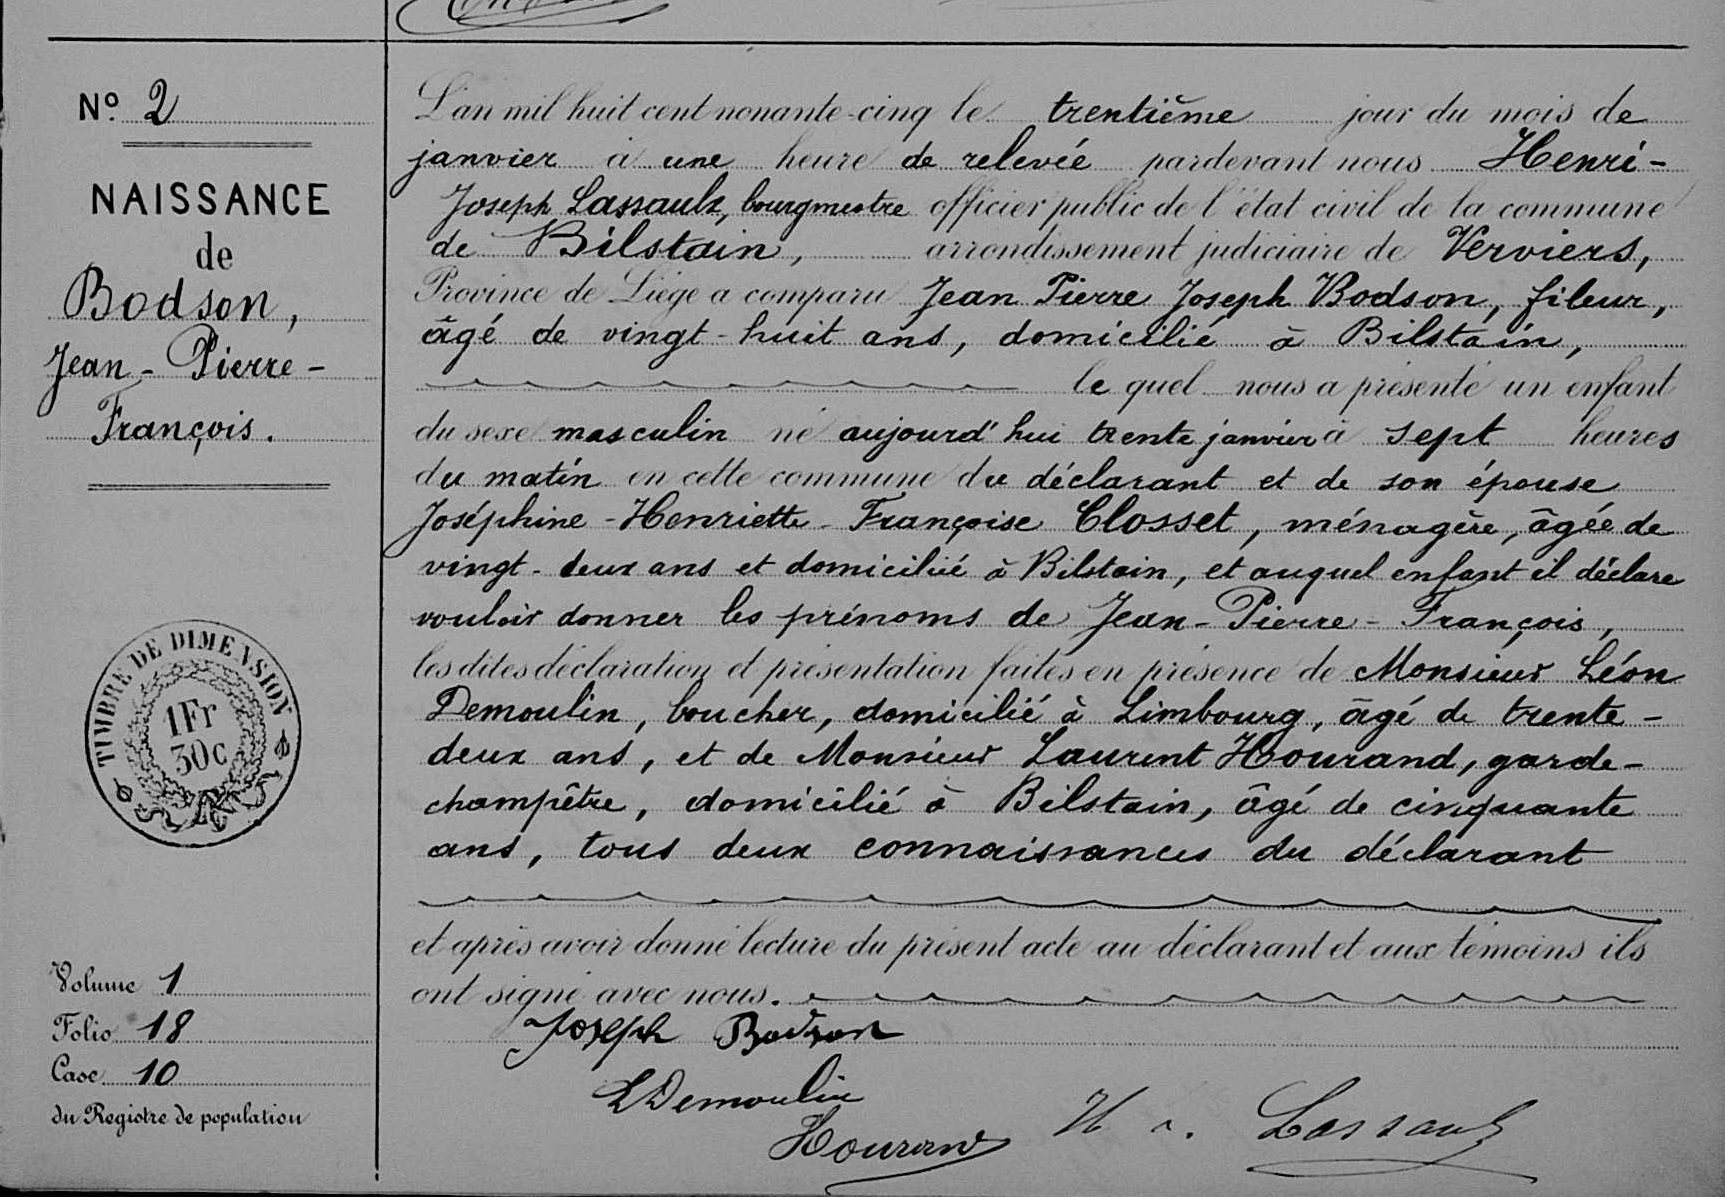 Nº 2
NAISSANCE
de
Bodson,
Jean-Pierre-
François.
TIMBRE DE DIMENSION
1Fr
30c
Volume 1
Folio 18
Case 10
du Registre de population
L'an mil huit cent nonante-cinq le trentième jour du mois de
janvier à une heure de relevée pardevant nous Henri-
Joseph Lassaulx, bourgmestre officier public de l'état civil de la commune
de Bilstain, arrondissement judiciaire de Verviers,
Province de Liége a comparu Jean Pierre Joseph Bodson, fileur,
âgé de vingt-huit ans, domicilié à Bilstain,
le quel nous a présenté un enfant
du sexe masculin né aujourd'hui trente janvier à sept heures
du matin en cette commune du déclarant et de son épouse
Joséphine-Henriette-Françoise Closset, ménagère, âgée de
vingt-deux ans et domicilié à Bilstain, et auquel enfant il déclare
vouloir donner les prénoms de Jean-Pierre-François,
les dites déclaration et présentation faites en présence de Monsieur Léon
Demoulin, boucher, domicilié à Limbourg, âgé de trente-
deux ans, et de Monsieur Laurent Hourand, garde-
champêtre, domicilié à Bilstain, âgé de cinquante
ans, tous deux connaissances du déclarant
et après avoir donné lecture du présent acte au déclarant et aux témoins ils
ont signé avec nous.
Joseph Bodson
L Demoulin
Hourand
H. Lassaulx